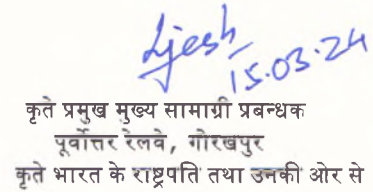 15.03.24
कृते प्रमुख मुख्य सामाग्री प्रबन्धक
पूर्वोत्तर रेलवे, गोरखपुर
कृते भारत के राष्ट्रपति तथा उनकी ओर से